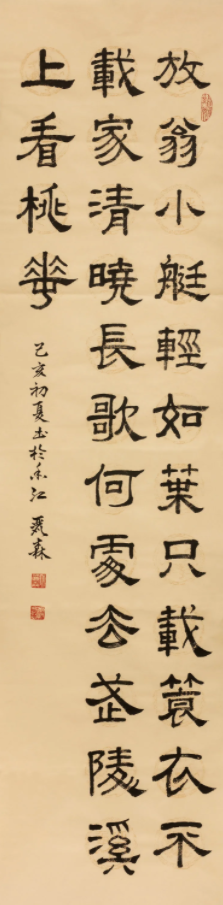 放翁小艇輕如葉只載蓑衣不
載家清曉長歌何處去武陵溪
上看桃華
己亥初夏書於香江 森